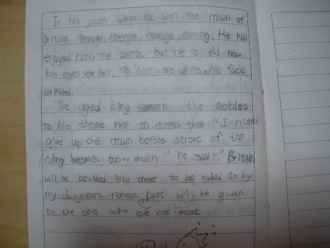 In his youth, Lear had won the crown of
Britain through strength, courage, cunning. He had
enjoyed ruling the but he is old now
his eyes are his hair were white, his face
wrinkled.
The aged king summon the nobles
to his throne room to address them "I must
give up the crown before strone of the
ruling becomes too much" he say "Britain
will be divided into three to be ruled by
my daughters. part will be given
to the one who love me